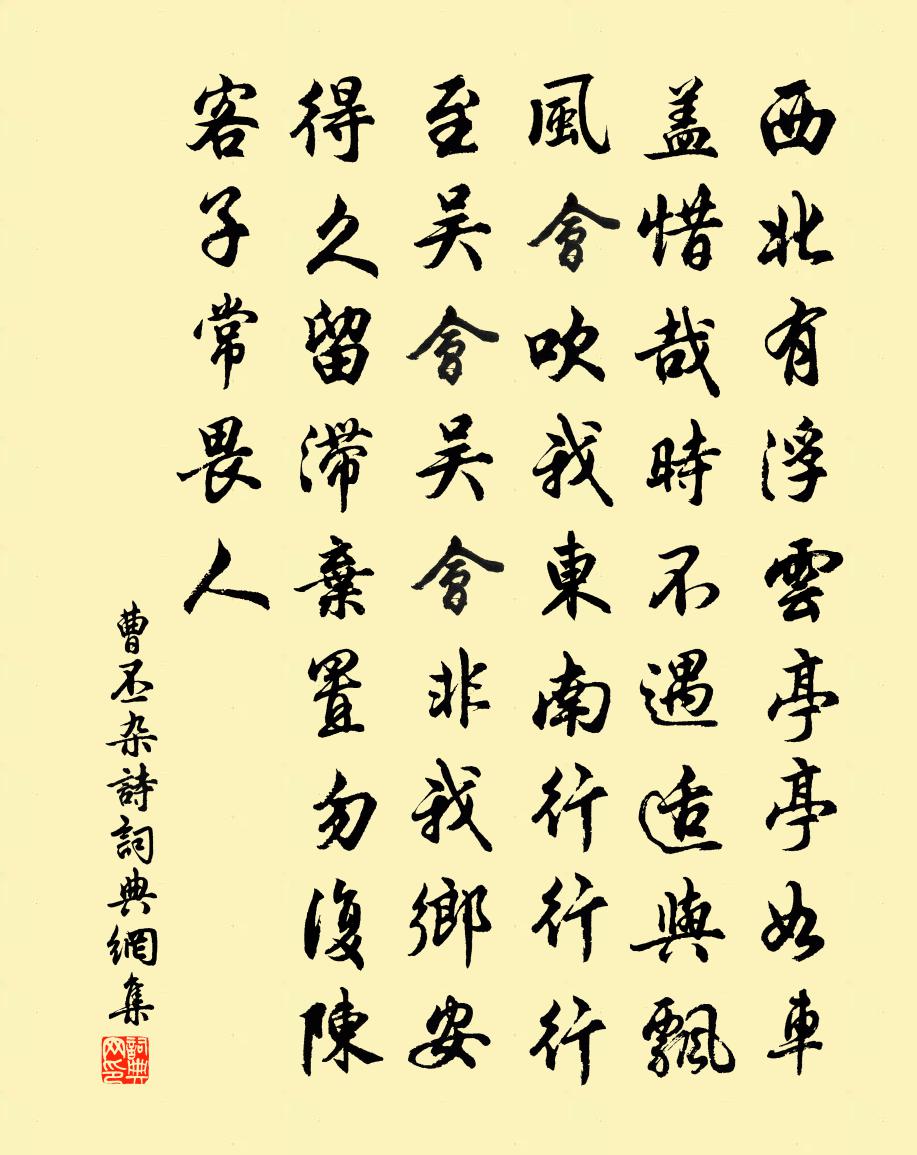 西北有浮雲亭亭如車
盖惜哉時不遇适與飄
風會吹我東南行行行
至吴會吴會非我鄉安
得久留滯棄置勿復陳
客子常畏人
曹丕杂詩詞典網集
詞典网印